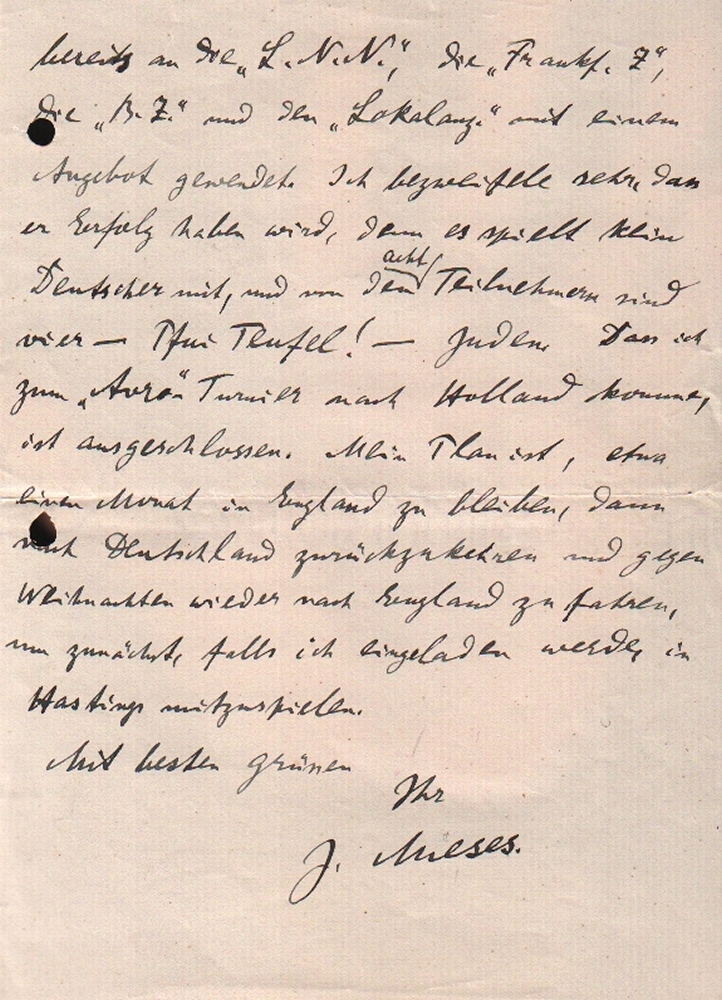 bereits an die „L. N. N.“, die „Frankf. Z“,
die „B. Z.“ und den „Lokalanz.“ mit einem
Angebot gewendet. Ich bezweifele sehr, dass
er Erfolg haben wird, denn es spielt kein
Deutscher mit, und von den acht Teilnehmern sind
vier — Pfui Teufel! — Juden. Dass ich
zum „Avro“ Turnier nach Holland komme,
ist ausgeschlossen. Mein Plan ist, etwa
einen Monat in England zu bleiben, dann
nach Deutschland zurückzukehren und gegen
Weihnachten wieder nach England zu fahren,
um zunächst, falls ich eingeladen werde, in
Hastings mitzuspielen.
Mit besten Grüssen
Ihr
J. Mieses.